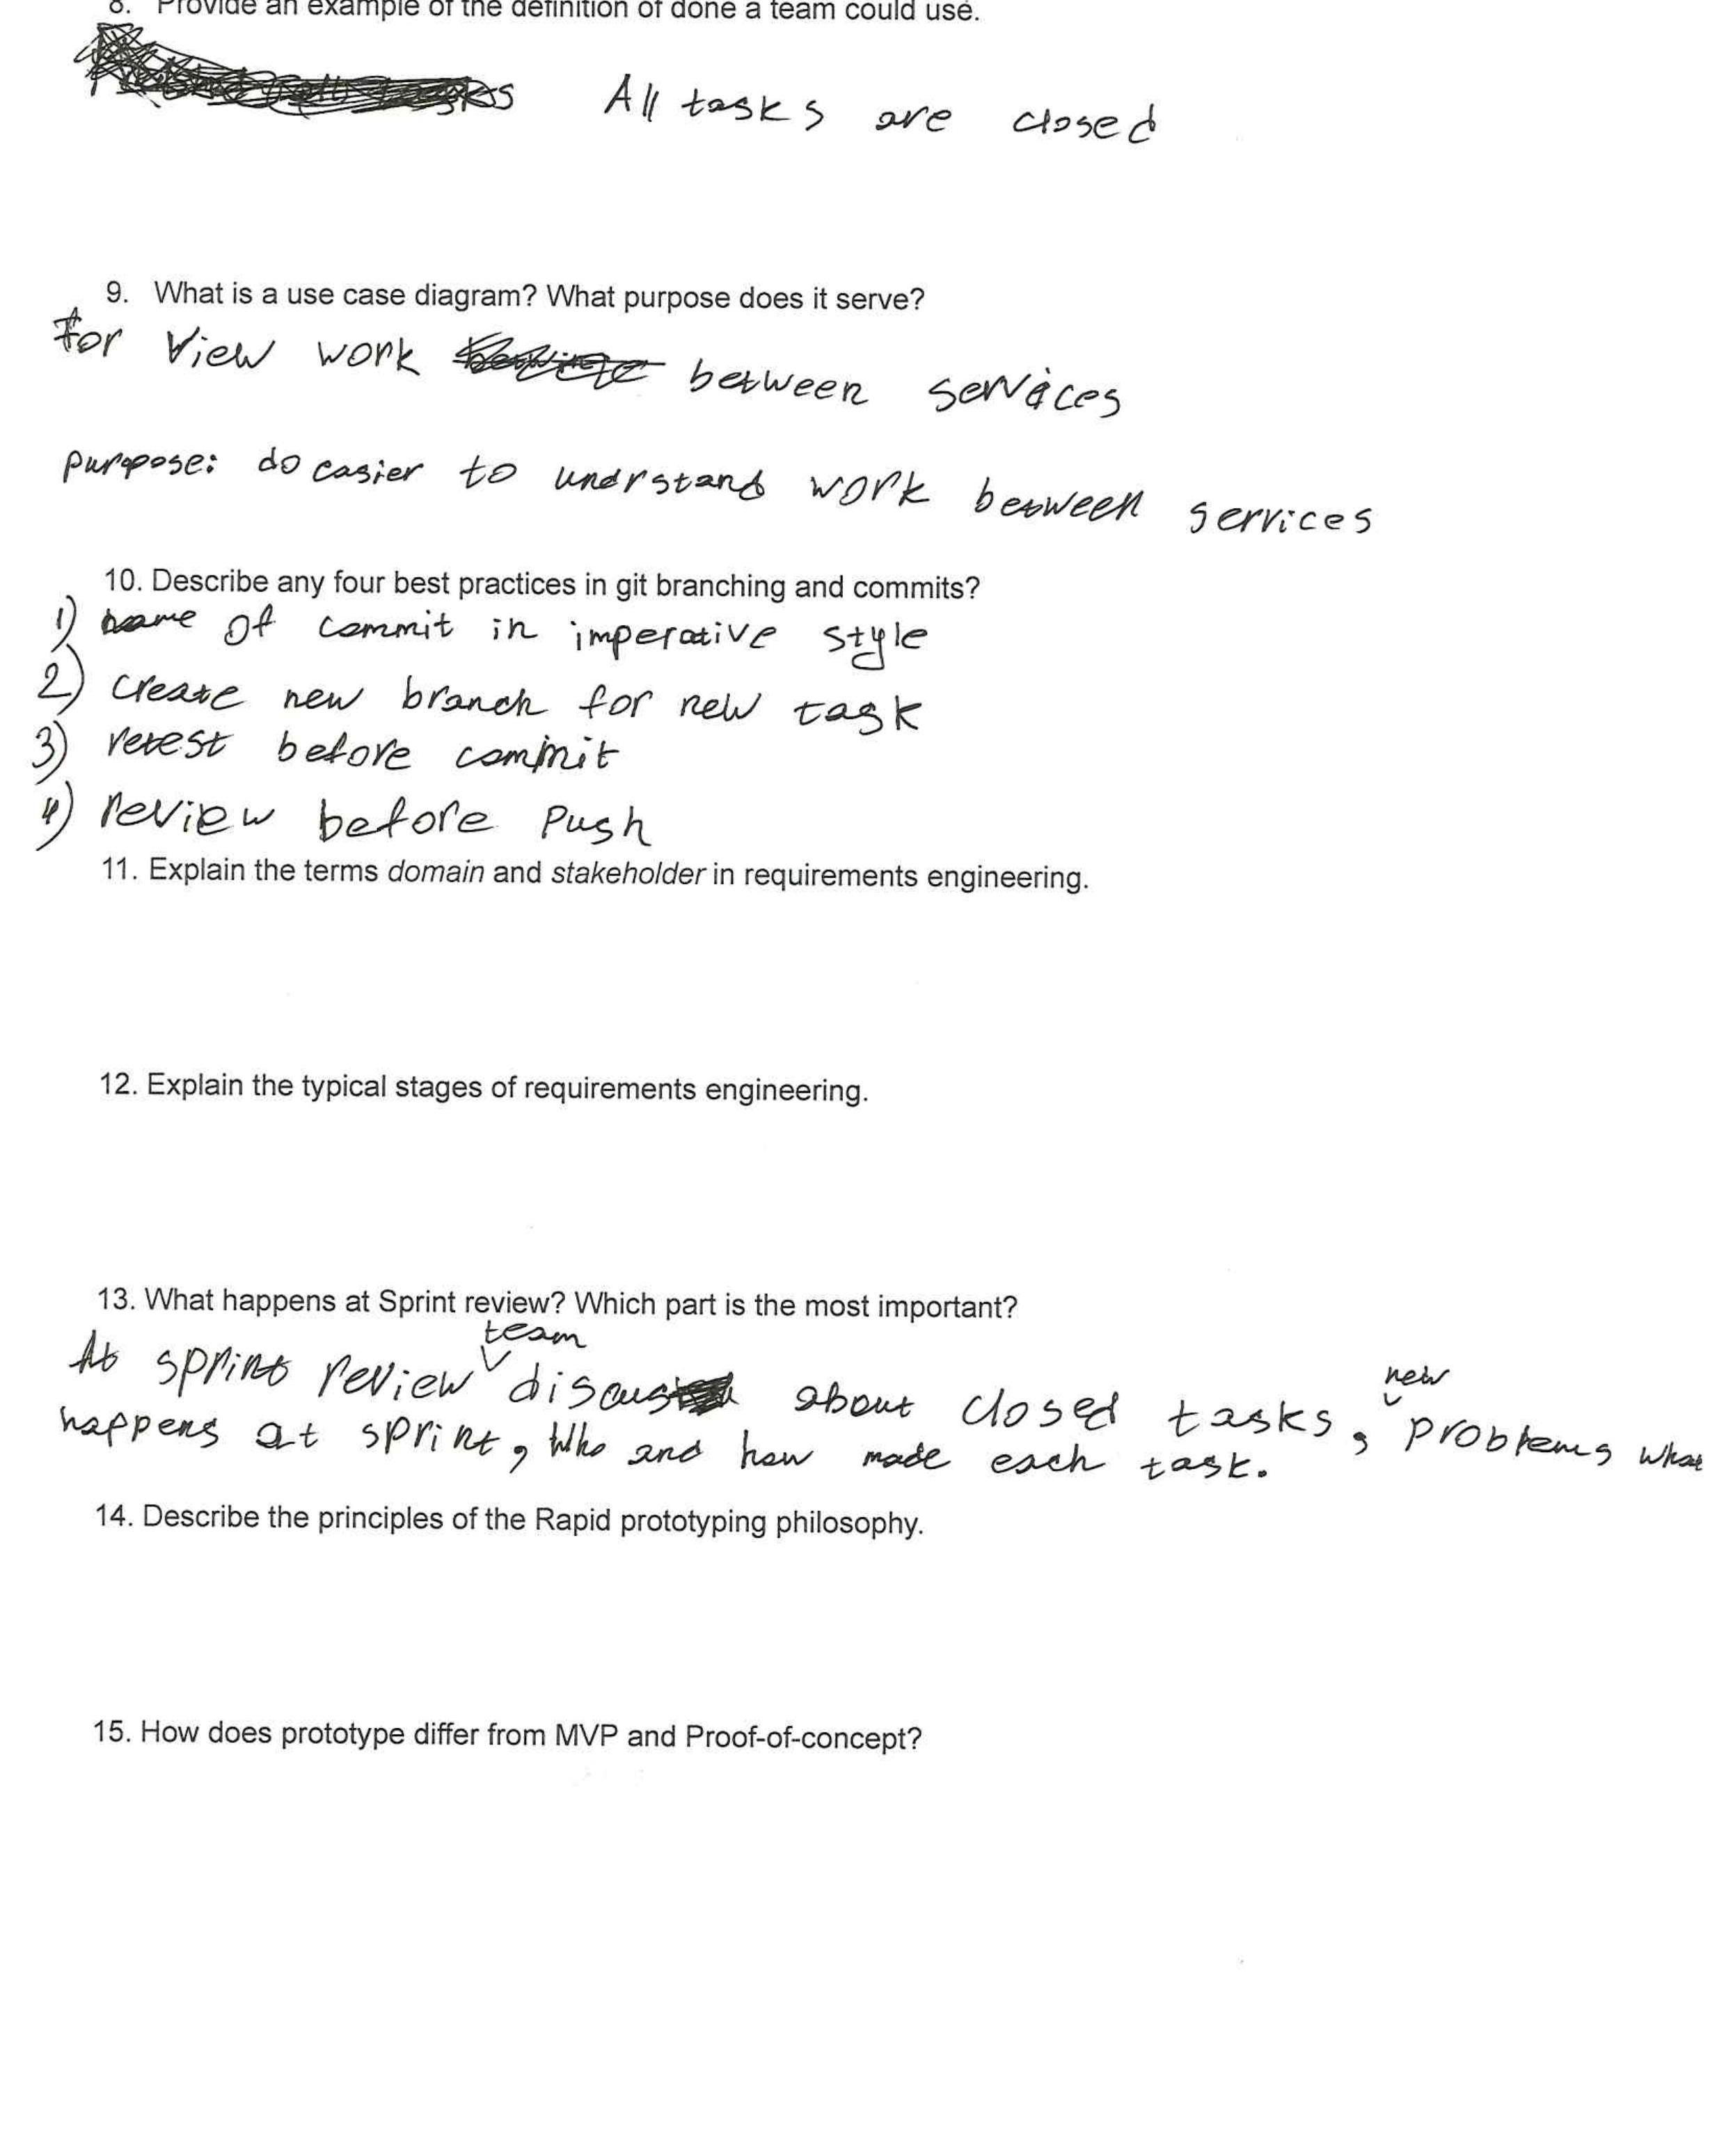 8. Provide an example of the definition of done a team could use.
All tasks are closed
9. What is a use case diagram? What purpose does it serve?
for view work between services
purpose: do easier to understand work between services
10. Describe any four best practices in git branching and commits?
1) name of commit in imperative style
2) create new branch for new task
3) retest before commit
4) review before push
11. Explain the terms domain and stakeholder in requirements engineering.
12. Explain the typical stages of requirements engineering.
13. What happens at Sprint review? Which part is the most important?
At sprint review team discuss about closed tasks, new problems what
happens at sprint, who and how made each task.
14. Describe the principles of the Rapid prototyping philosophy.
15. How does prototype differ from MVP and Proof-of-concept?